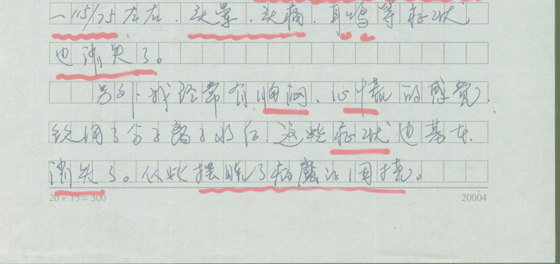 一115/75左右.头晕.头痛,耳鸣等症状
也消失了。
另外,我经常有胸闷、心慌的感觉.
饮用了分子离子水后,这些症状也基本
消失了。从此摆脱了病魔的困扰。
20×15=300 20004